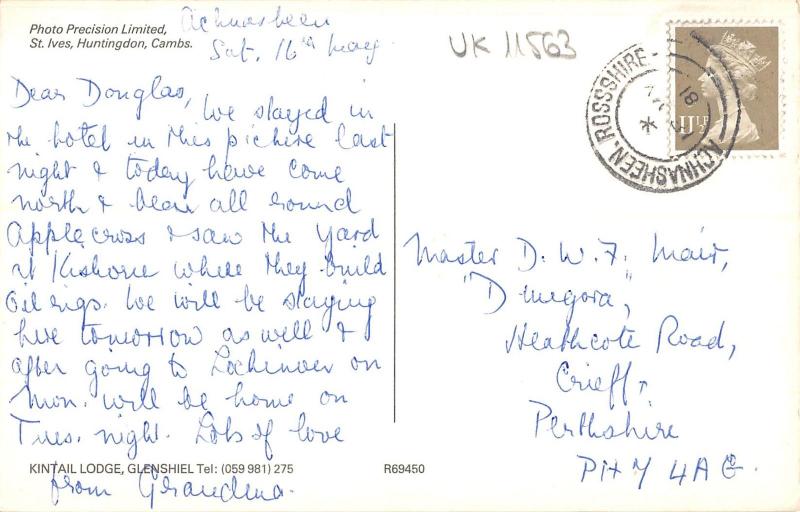 Photo Precision Limited,
St. Ives, Huntingdon, Cambs.
Achnasheen
Sat. 16th May
UK 11563
Dear Douglas,
We stayed in
the hotel in this picture last
night & today have come
north & been all round
Applecross & saw the yard
at Kishorn where they build
oil rigs. We will be staying
here tomorrow as well &
after going to Lochinver on
Mon. will be home on
Tues. night. Lots of love
from Grandma.
KINTAIL LODGE, GLENSHIEL Tel: (059 981) 275
R69450
ACHNASHEEN. ROSSSHIRE
18
81
11½P
Master D. W. F. Mair,
Heathcote Road,
Crieff,
Perthshire
PH7 4AG.